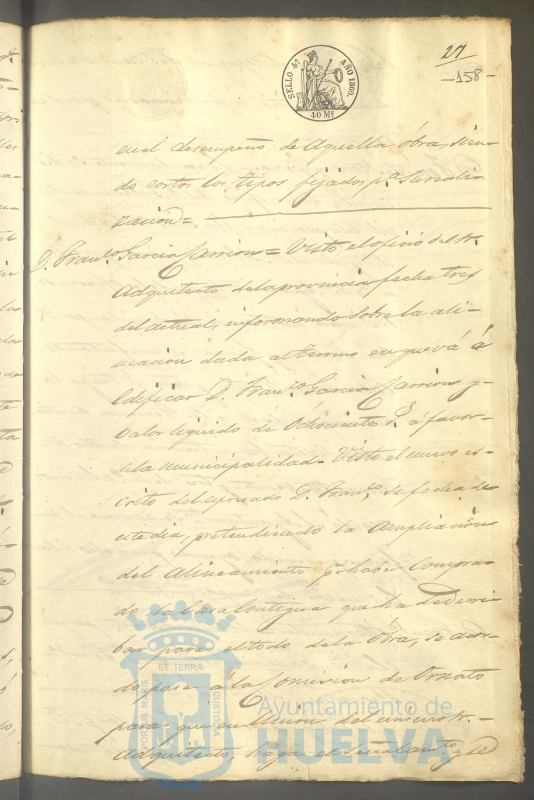 27
-158-
SELLO 4º AÑO 1860.
40 Ms
en el desempeño de Aquella óbra, sien-
do cortos los tipos fijados pª su reali-
zacion=
D. Franco. Garcia Carrion= Visto el oficio del Sr.
Adquitecto dela provincia fecha tres
del actual, informando sobre la ali-
neacion dada al terreno en que vá á
Edificar D. Franco. Garcia Carrion y
valor liquido de Ochocientos Rs. á favor
dela municipalidad. Visto el nuevo es-
crito del espresado D. Franco. su fecha de
este dia, pretendiendo la Ampliacion
del Alineamiento pr. haber Compra-
do la Casa Contigua que ha de derri-
bar para el todo dela óbra, se acor-
dó pase á la Comision de Ornato
para que en Union del mismo Sr.
Adquitecto, haga el y de
PORTUS MARIS ET TERRÆ CUSTODIA
Ayuntamiento de
HUELVA